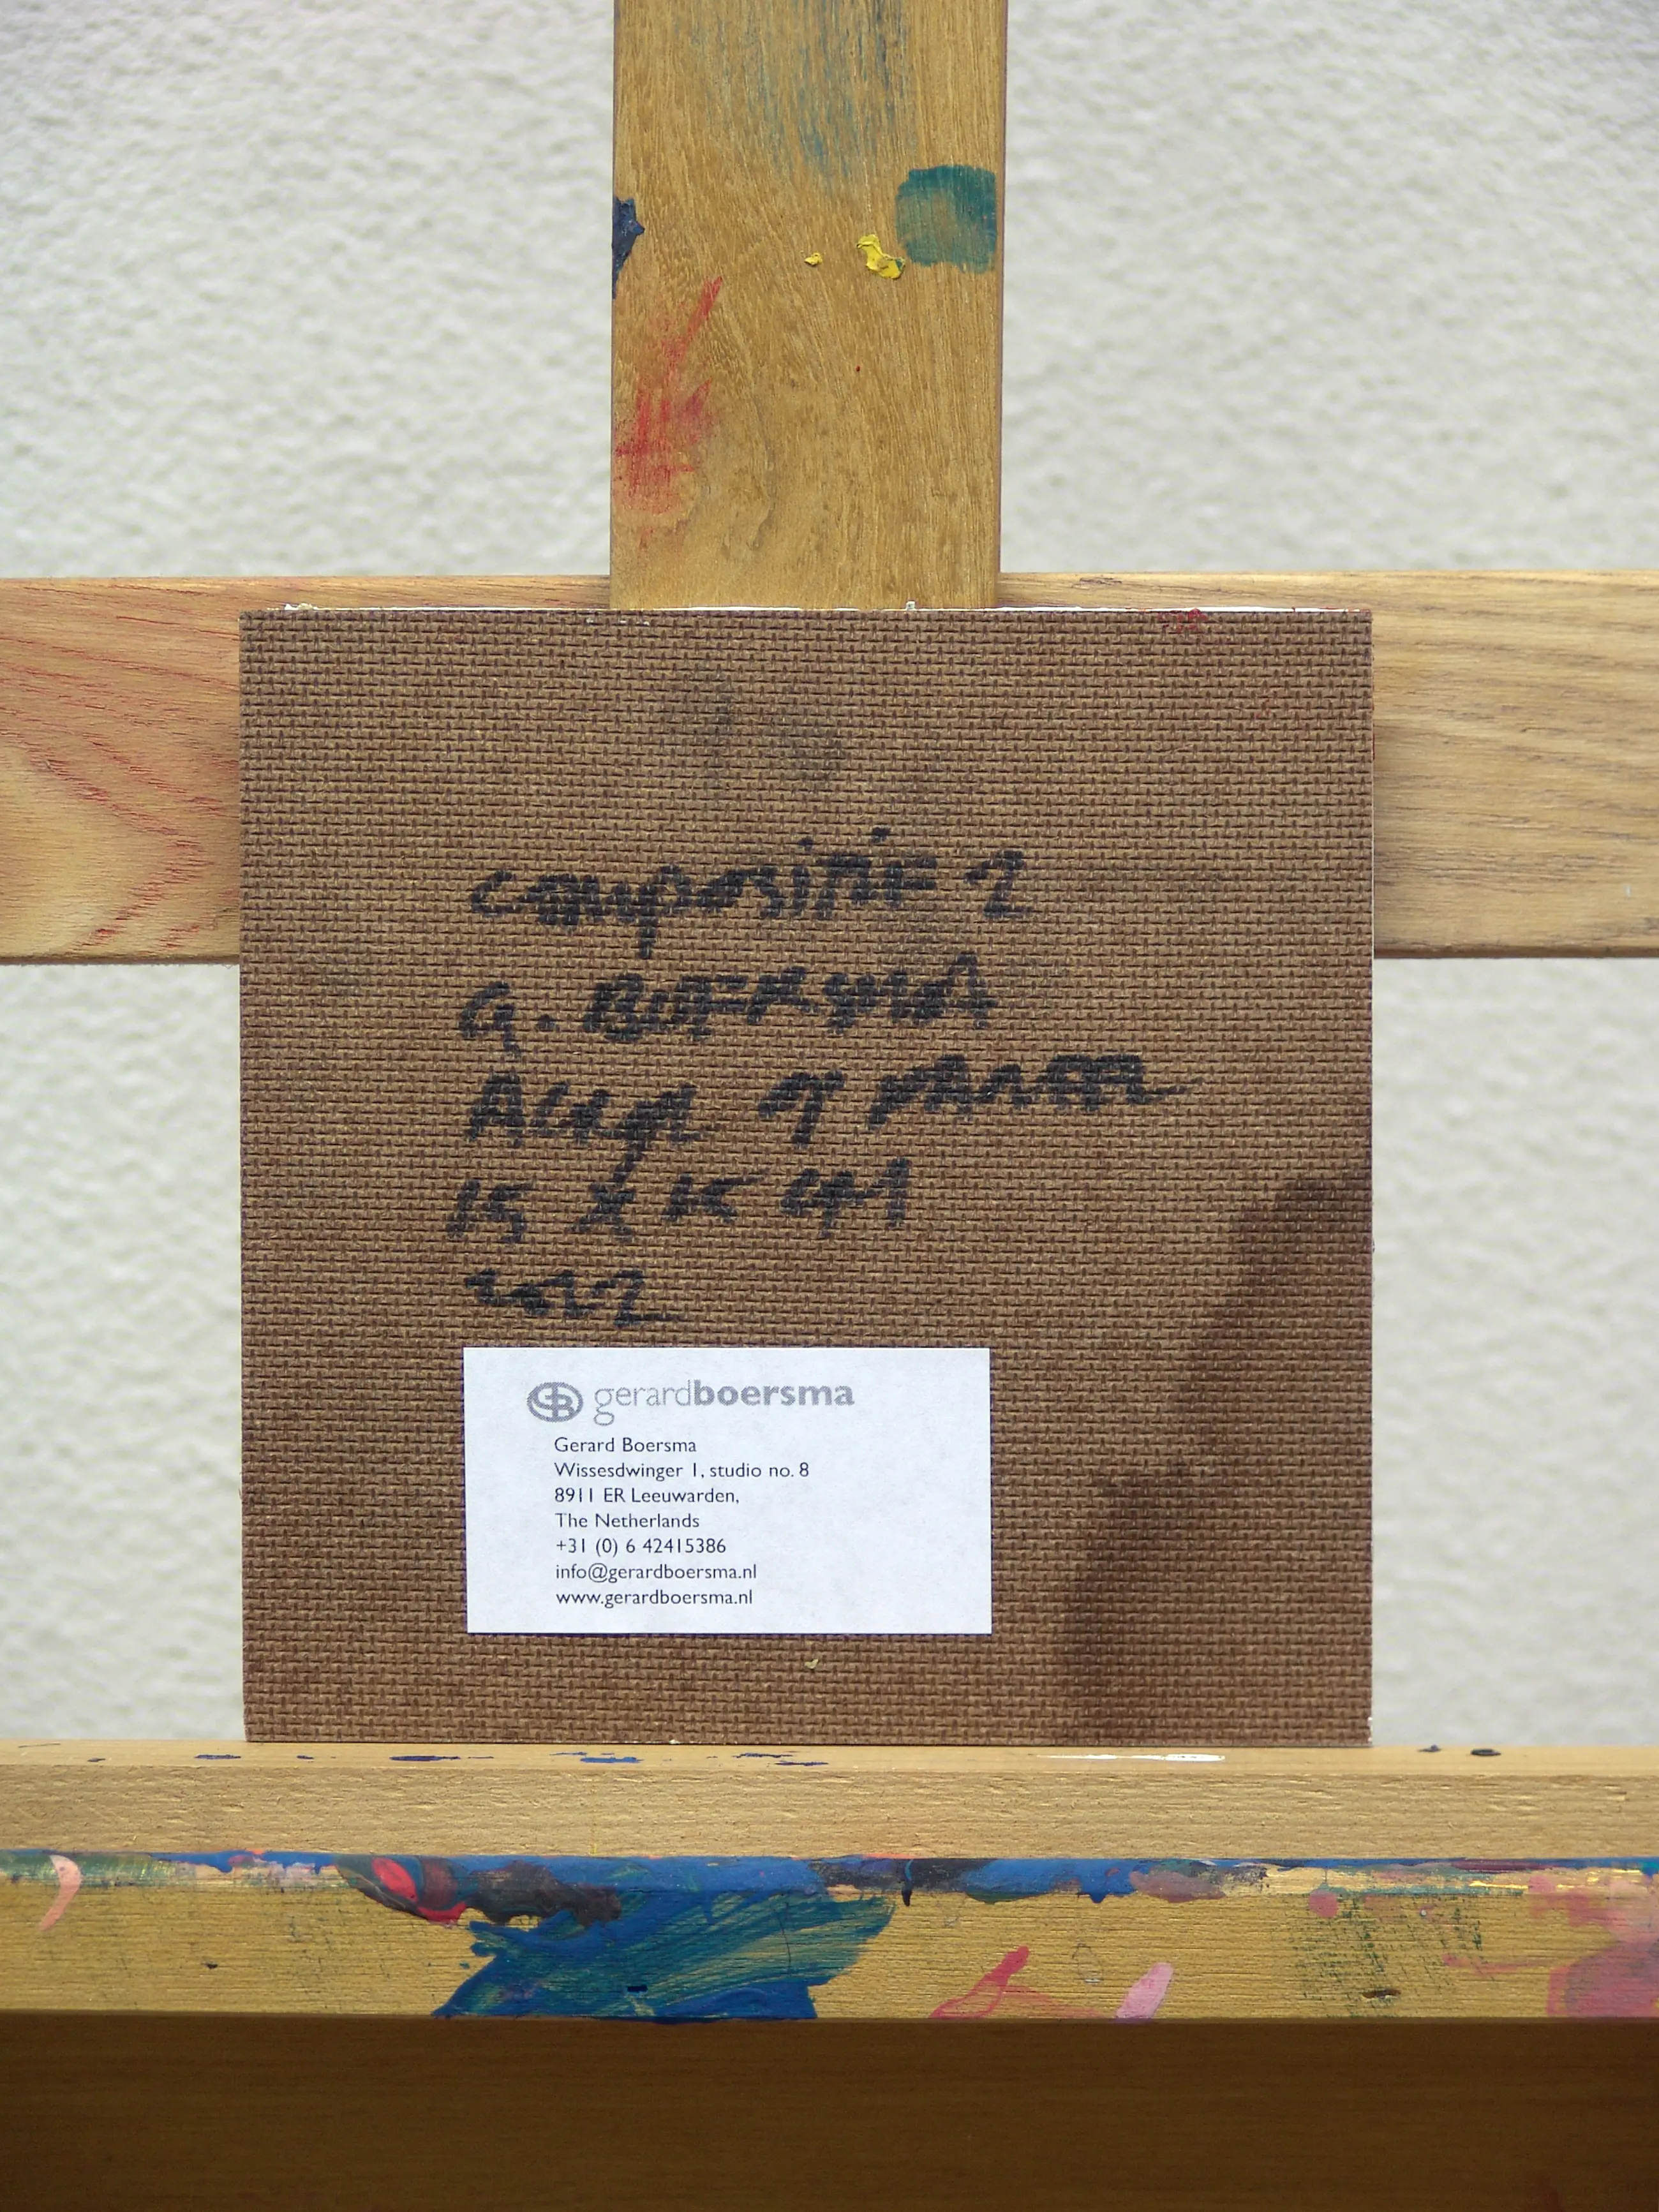 compositie 2
G. BOERSMA
Acryl op paneel
15 x 15 cm
2022
GB gerardboersma
Gerard Boersma
Wissesdwinger 1, studio no. 8
8911 ER Leeuwarden,
The Netherlands
+31 (0) 6 42415386
info@gerardboersma.nl
www.gerardboersma.nl